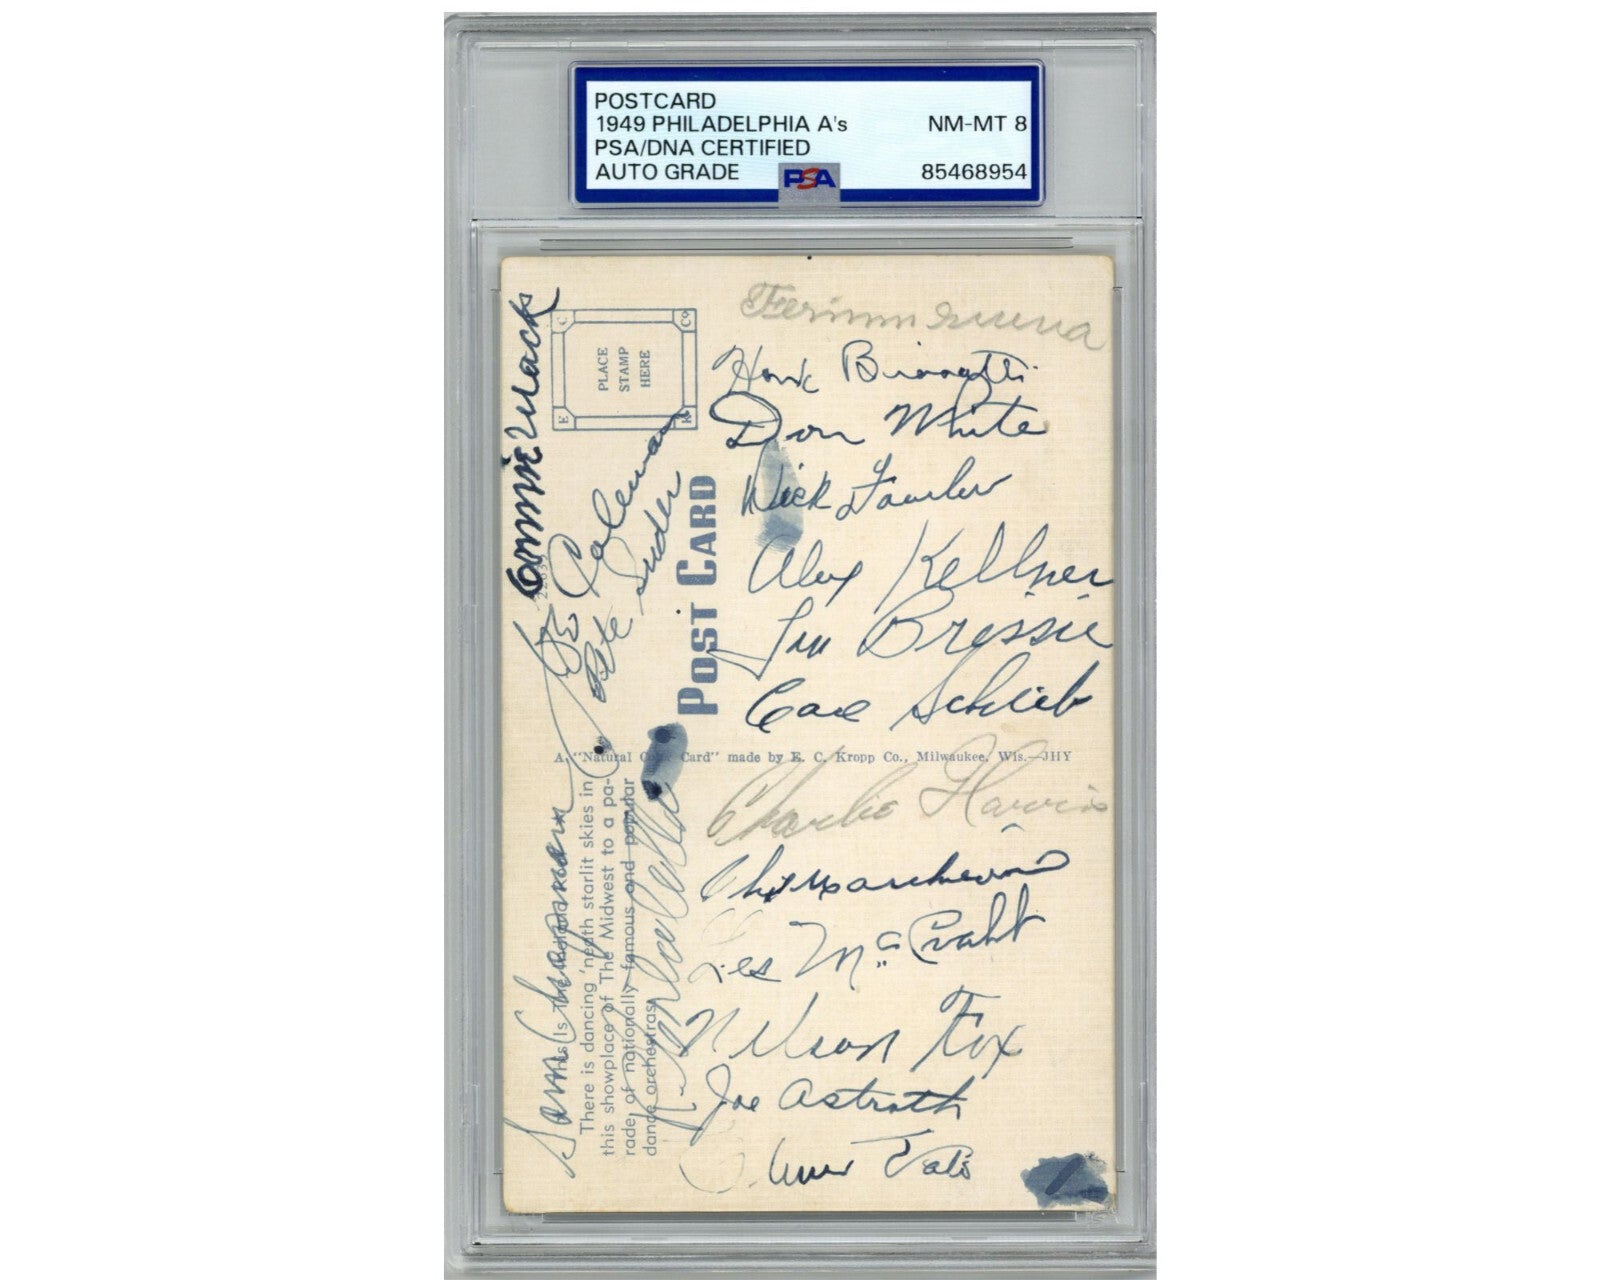 POSTCARD
1949 PHILADELPHIA A's NM-MT 8
PSA/DNA CERTIFIED
AUTO GRADE PSA 85468954
Connie Mack
PLACE
STAMP
HERE
E C Co K
Joe Coleman
Pete Suder
POST CARD
Hank Biasatti
Don White
Dick Fowler
Alex Kellner
Lou Brissie
Carl Scheib
A "Natural Color Card" made by E. C. Kropp Co., Milwaukee, Wis.—JHY
Charlie Harris
Phil Marchildon
Les McCrabb
Nelson Fox
Joe Astroth
Elmer Valo
Sam Chapman
This is the
There is dancing 'neath starlit skies in
this showplace of The Midwest to a pa-
rade of nationally famous and popular
dance orchestras.